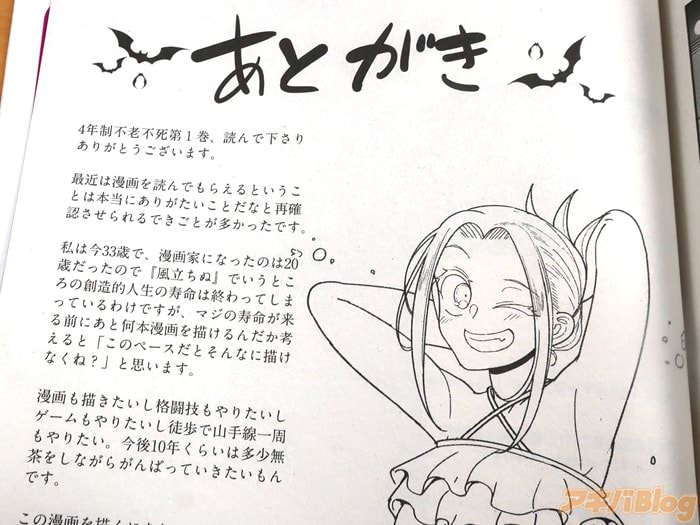 あとがき
4年制不老不死第1巻、読んで下さり
ありがとうございます。
最近は漫画を読んでもらえるというこ
とは本当にありがたいことだなと再確
認させられるできごとが多かったです。
私は今33歳で、漫画家になったのは20
歳だったので『風立ちぬ』でいうとこ
ろの創造的人生の寿命は終わってしま
っているわけですが、マジの寿命が来
る前にあと何本漫画を描けるんだか考
えると「このペースだとそんなに描け
なくね？」と思います。
漫画も描きたいし格闘技もやりたいし
ゲームもやりたいし徒歩で山手線一周
もやりたい。今後10年くらいは多少無
茶をしながらがんばっていきたいもん
です。
アキバBlog